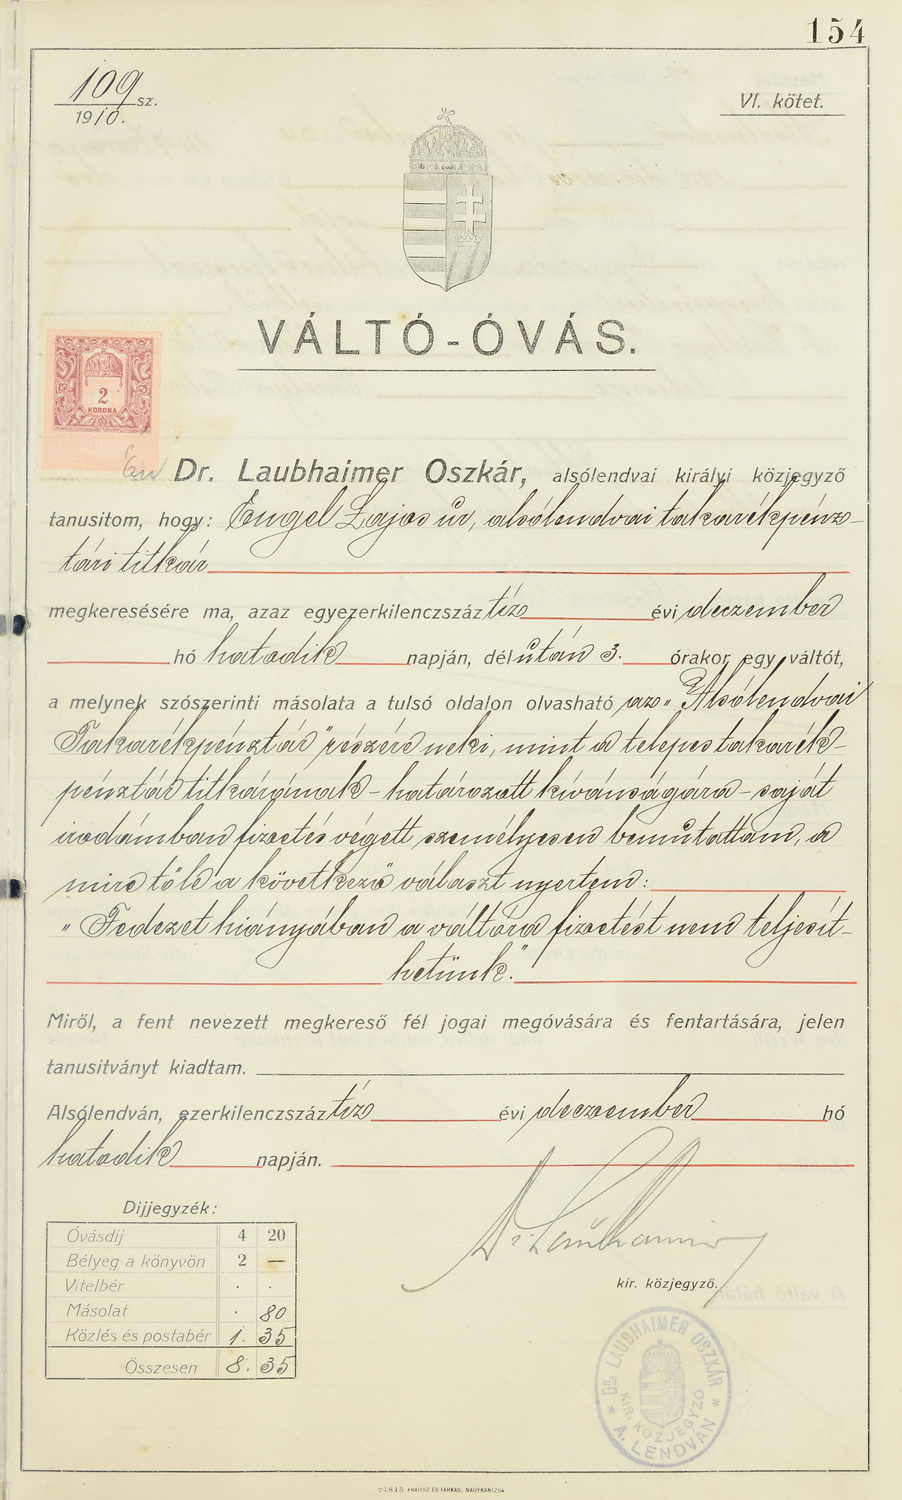 154
109 sz.
1910.
VI. kötet.
VÁLTÓ-ÓVÁS.
2
KORONA
Én Dr. Laubhaimer Oszkár, alsólendvai királyi közjegyző
tanusitom, hogy: Engel Lajos úr, alsólendvai takarékpénz-
tári titkár
megkeresésére ma, azaz egyezerkilenczszáz tíz évi deczember
hó hatodik napján, délután 3. órakor egy váltót,
a melynek szószerinti másolata a tulsó oldalon olvasható az „Alsólendvai
Takarékpénztár" részére neki, mint a telepes takarék-
pénztár titkárának - határozott kívánságára - saját
irodámban fizetés végett személyesen bemutattam, a
mire tőle a következő választ nyertem:
„Fedezet hiányában a váltóra fizetést nem teljesít-
hetünk."
Miről, a fent nevezett megkereső fél jogai megóvására és fentartására, jelen
tanusitványt kiadtam.
Alsólendván, ezerkilenczszáz tíz évi deczember hó
hatodik napján.
Dijjegyzék:
Óvásdij 4 20
Bélyeg a könyvön 2 —
Vitelbér . .
Másolat . 80
Közlés és postabér 1. 35
Összesen 8. 35
Dr. Laubhaimer
kir. közjegyző.
DR. LAUBHAIMER OSZKÁR
KIR. KÖZJEGYZŐ
* A. LENDVÁN *
24845 KRAUSZ ÉS FARKAS, NAGYKANIZSA